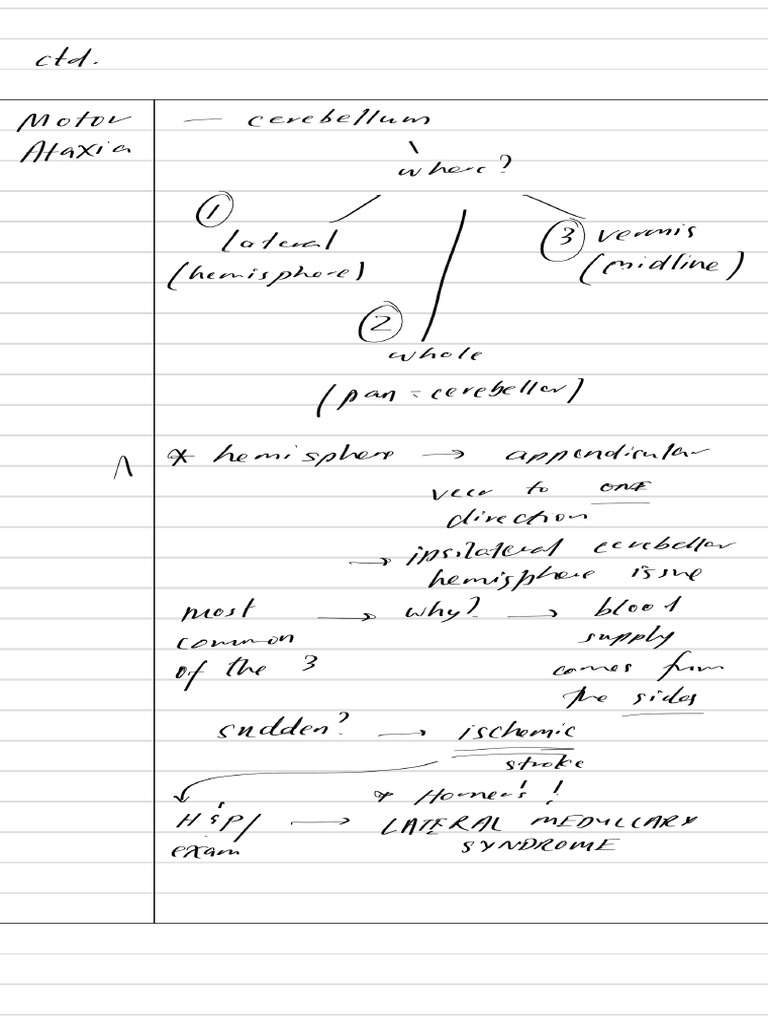 ctd.
Motor
Ataxia
— cerebellum
\
where?
① lateral
(hemisphere)
③ vermis
(midline)
②
whole
(pan - cerebellar)
* hemisphere → appendicular
veer to ONE
direction
→ ipsilateral cerebellar
hemisphere issue
most → why? → blood
common supply
of the 3 comes from
the sides
sudden? → ischemic
stroke
* Horner's!
H & P/ → LATERAL MEDULLARY
exam SYNDROME